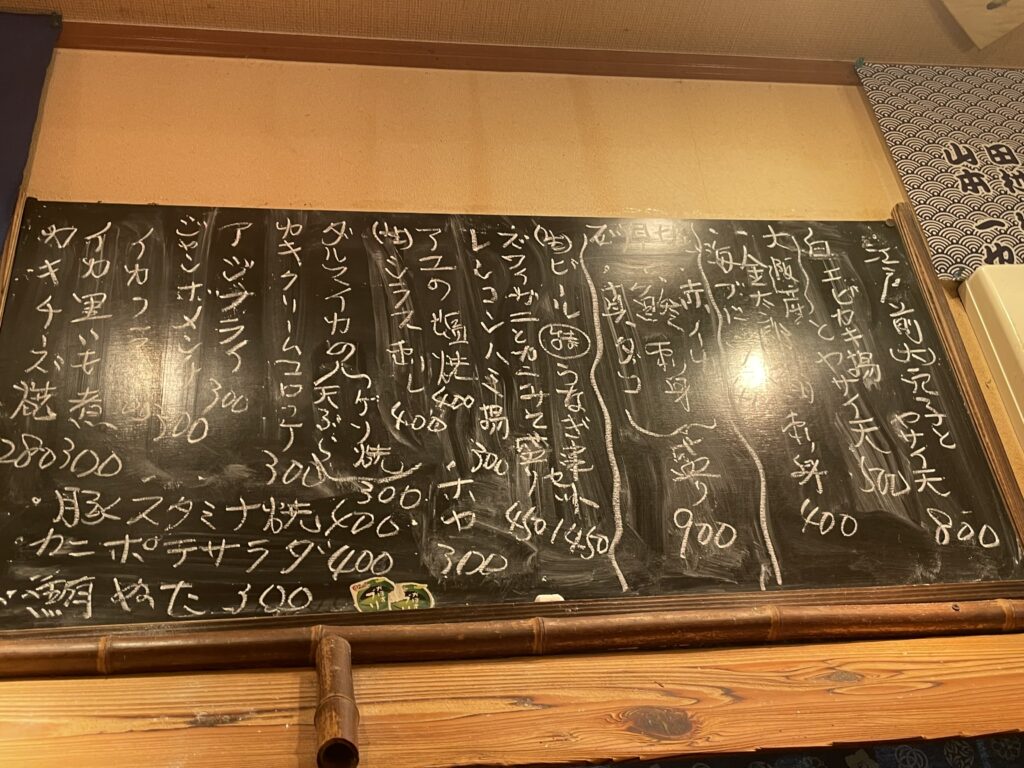 江戸前(大)穴子と
ヤサイ天 800
白エビカキ揚
とヤサイ天 500
大阪産
金太郎 刺身 400
海ブ
赤イカ
刺身
真ダコ
盛り 900
(生)ビール うなぎ
セット 1450
ズワイガニとカニみそ盛り 450
レンコンハサミ揚 500
アユの塩焼 400
・ホヤ 300
(生)シラス刺し 400
ダルマイカの天ぷら
300
カキクリームコロッケ 300
アジフライ 300
ジャンボメンチ 300
イカフライ
イカ里いも煮 300
カキチーズ焼 280
・豚スタミナ焼 400
・カニポテサラダ 400
ぬた 300
山本
一也
田